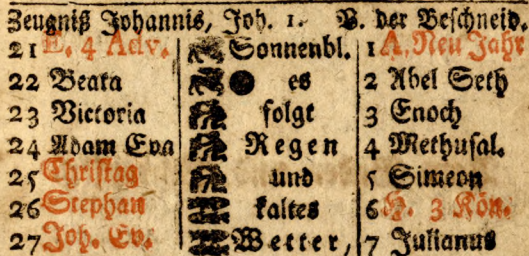 Zeugniß Johannis, Joh. 1. B. der Beschneid.
21 E. 4 Adv. Sonnenbl. 1 A. Neu Jahr
22 Beata es 2 Abel Seth
23 Victoria folgt 3 Enoch
24 Adam Eva Regen 4 Methusal.
25 Christag und 5 Simeon
26 Stephan kaltes 6 H. 3 Kön.
27 Joh. Ev. Wetter, 7 Julianus